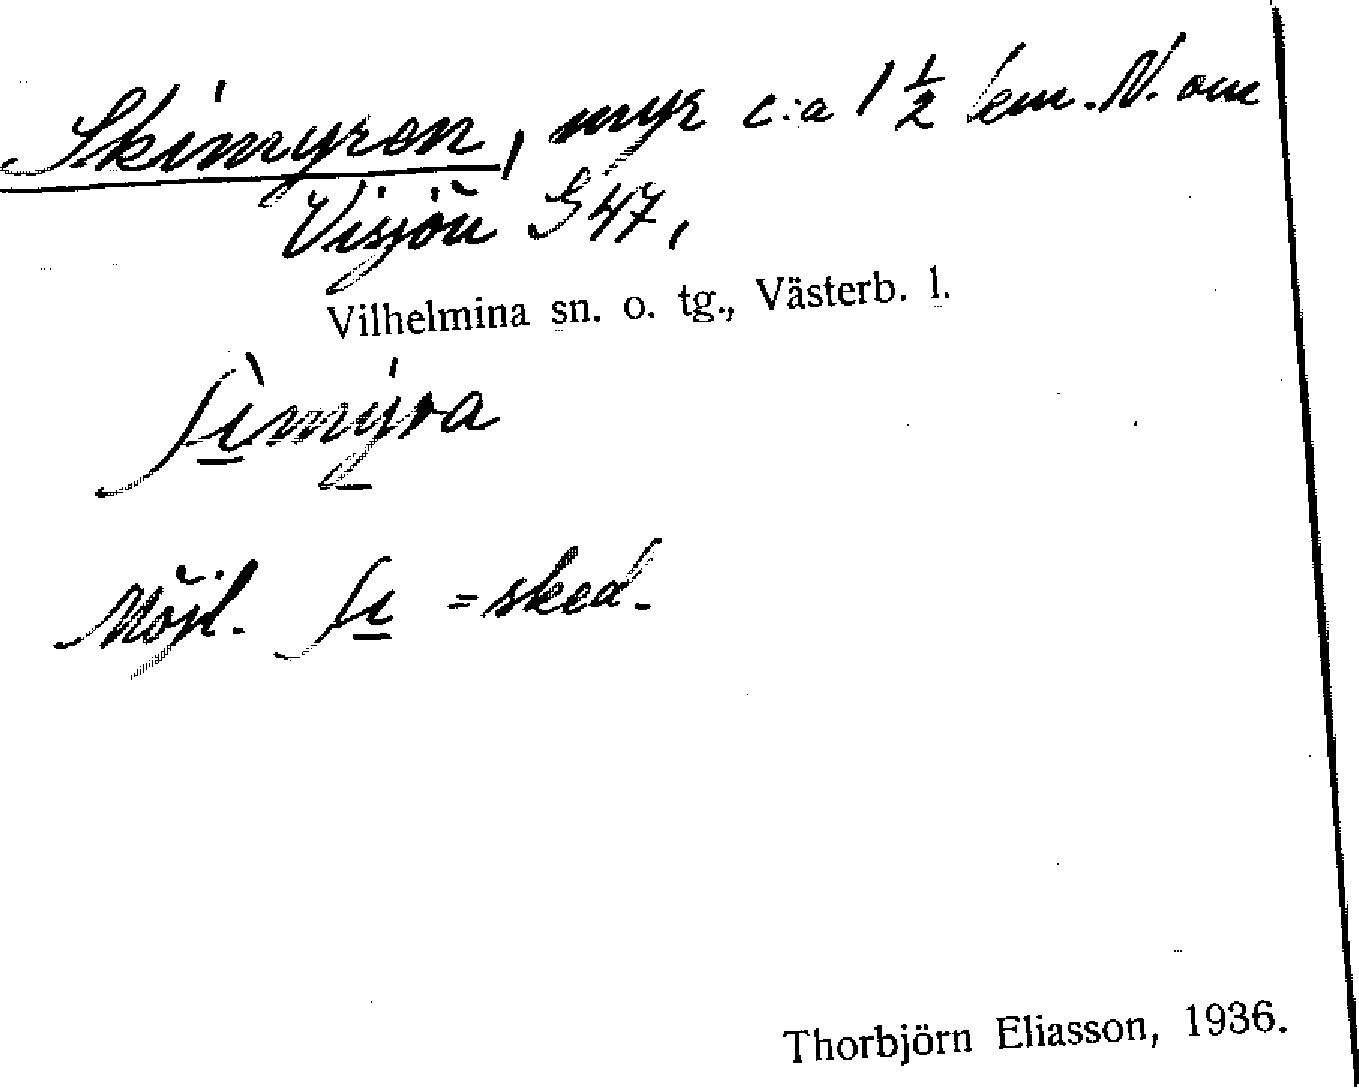 Skimyren, myr c:a 1 1/2 km. N. om
Visjön S 47,
Vilhelmina sn. o. tg., Västerb. l.
ʃìmýra
Möjl. ʃi = sked.
Thorbjörn Eliasson, 1936.